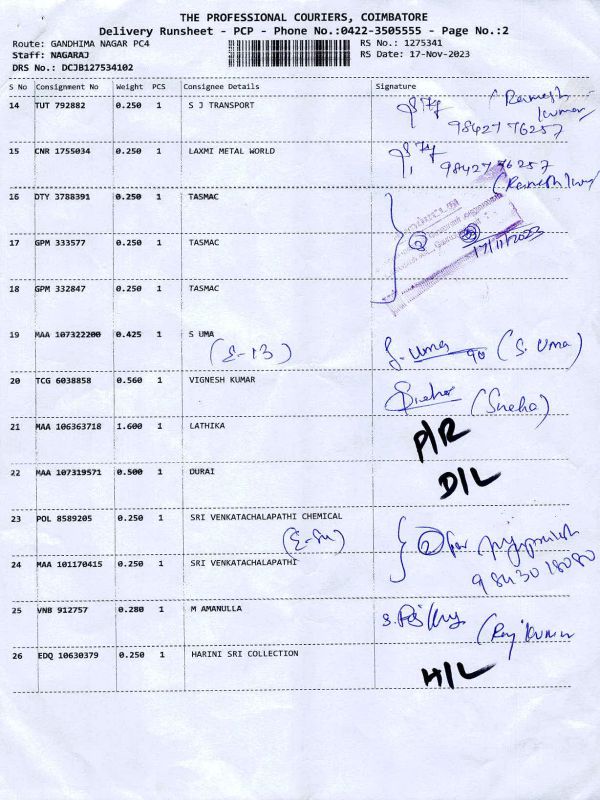 THE PROFESSIONAL COURIERS, COIMBATORE
Delivery Runsheet - PCP - Phone No.:0422-3505555 - Page No.:2
Route: GANDHIMA NAGAR PC4
RS No.: 1275341
Staff: NAGARAJ
RS Date: 17-Nov-2023
DRS No.: DCJB127534102
S No Consignment No Weight PCS Consignee Details Signature
14 TUT 792882 0.250 1 S J TRANSPORT
(Ramesh kumar)
9842776257
15 CNR 1755034 0.250 1 LAXMI METAL WORLD
9842776257
16 DTY 3788391 0.250 1 TASMAC
17 GPM 333577 0.250 1 TASMAC
17/11/2023
18 GPM 332847 0.250 1 TASMAC
19 MAA 107322200 0.425 1 S UMA
(E-13)
S. Uma (S. Uma)
20 TCG 6038858 0.560 1 VIGNESH KUMAR
(Sneha)
21 MAA 106363718 1.600 1 LATHIKA P/R
22 MAA 107319571 0.500 1 DURAI D/L
23 POL 8589205 0.250 1 SRI VENKATACHALAPATHI CHEMICAL
24 MAA 101170415 0.250 1 SRI VENKATACHALAPATHI
9843018080
25 VNB 912757 0.280 1 M AMANULLA
(Raj kumar
26 EDQ 10630379 0.250 1 HARINI SRI COLLECTION H/L